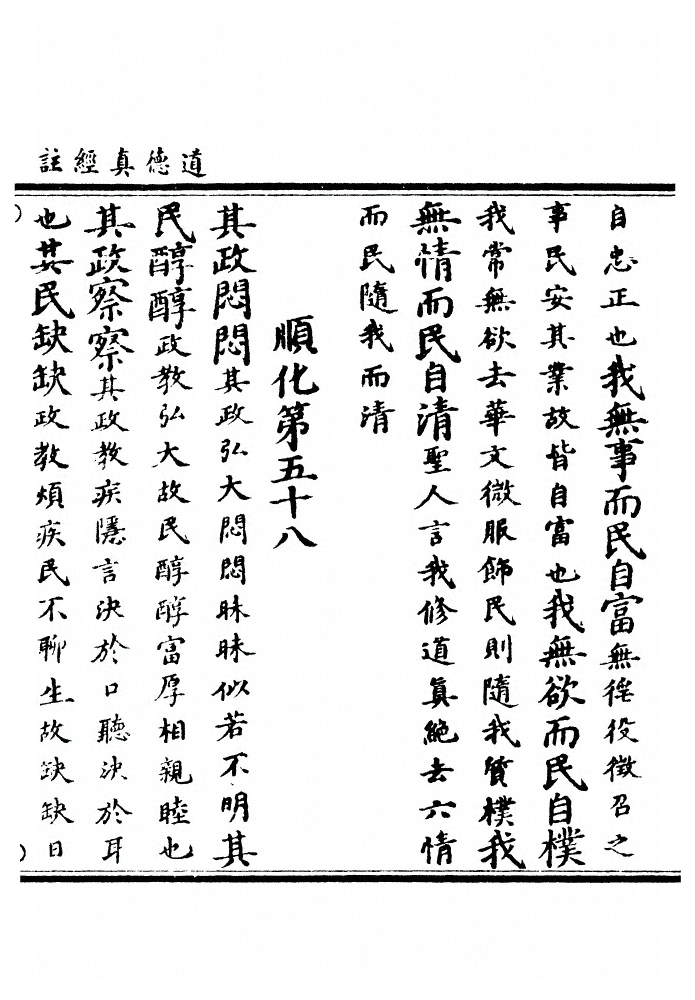 道德真經註
自忠正也我無事而民自富無徭役徵召之
事民安其業故皆自富也我無欲而民自樸
我常無欲去華文微服飾民則隨我質樸我
無情而民自清聖人言我修道真絶去六情
而民隨我而清
順化第五十八
其政悶悶其政弘大悶悶昧昧似若不明其
民醇醇政教弘大故民醇醇富厚相親睦也
其政察察其政教疾隱言決於口聽決於耳
也其民缺缺政教煩疾民不聊生故缺缺日